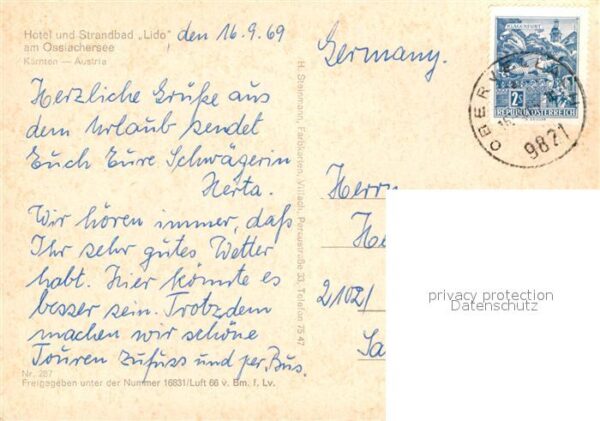 Hotel und Strandbad „Lido"
am Ossiachersee
Kärnten — Austria
den 16.9.69
Herzliche Grüße aus
dem Urlaub sendet
Euch Eure Schwägerin
Herta.
Wir hören immer, daß
Ihr sehr gutes Wetter
habt. Hier könnte es
besser sein. Trotzdem
machen wir schöne
Touren zufuss und per Bus.
Nr. 287
Freigegeben unter der Nummer 16831/Luft 66 v. Bm. f. Lv.
H. Steinmann, Farbkarten, Villach, Peraustraße 33, Telefon 75 47
Germany.
Herrn
He
2102/
Sa
KLAGENFURT
2S
REPUBLIK ÖSTERREICH
OBERVELLACH
9821
privacy protection
Datenschutz